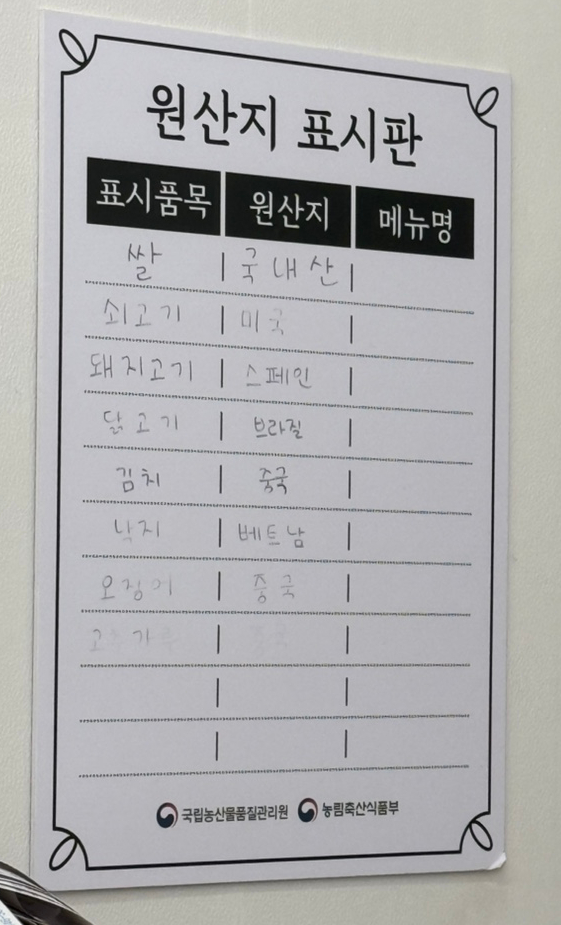 원산지 표시판
표시품목 원산지 메뉴명
쌀 국내산
쇠고기 미국
돼지고기 스페인
닭고기 브라질
김치 중국
낙지 베트남
오징어 중국
국립농산물품질관리원 농림축산식품부